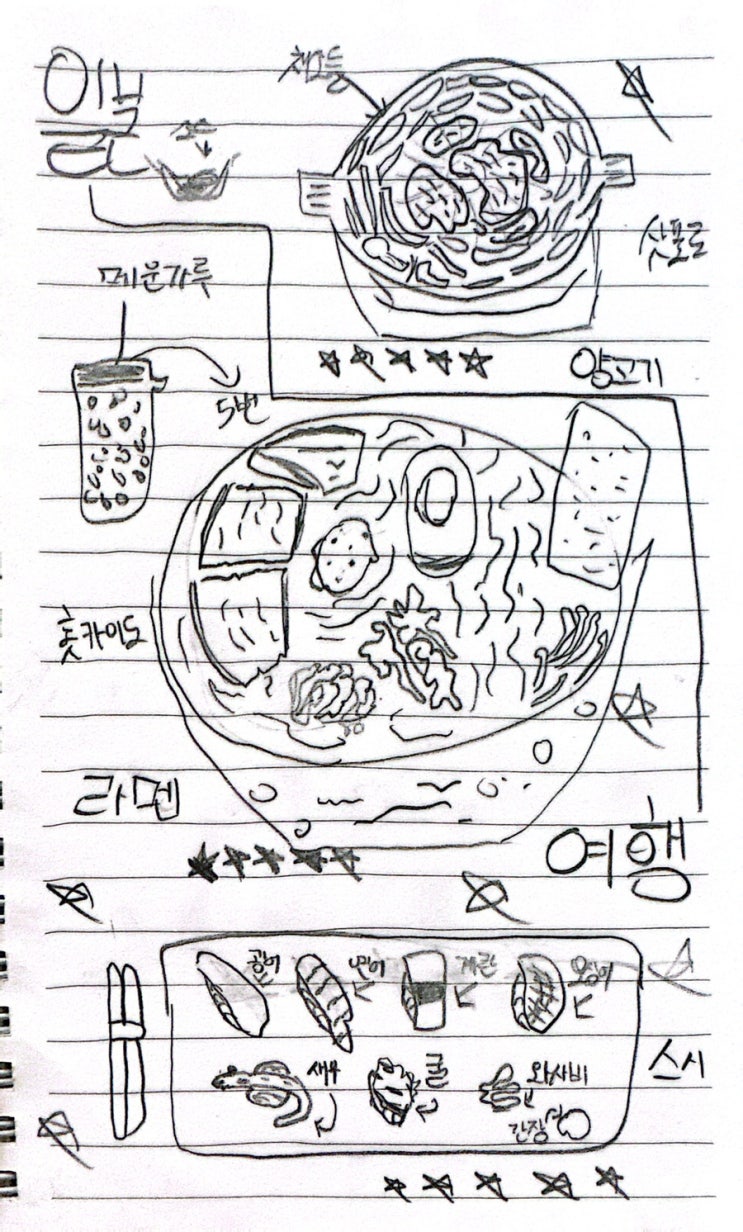 일본
채소들
소스
삿포로
메운가루
양고기
5번
홋카이도
라멘
여행
광어
연어
계란
오징어
스시
새우
굴
와사비
간장